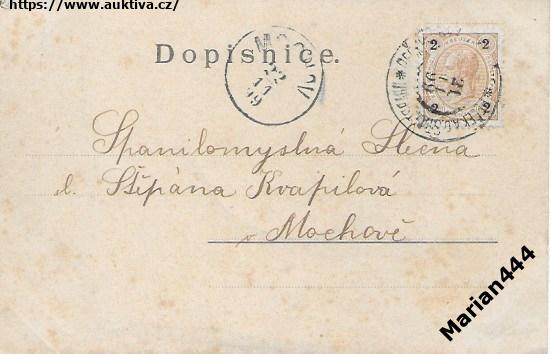 https://www.auktiva.cz/
Dopisnice.
MOCHOV
22
11
99
2 2
Spanilomyslná Slečna
sl. Štěpána Kvapilová
v Mochově
Marian444